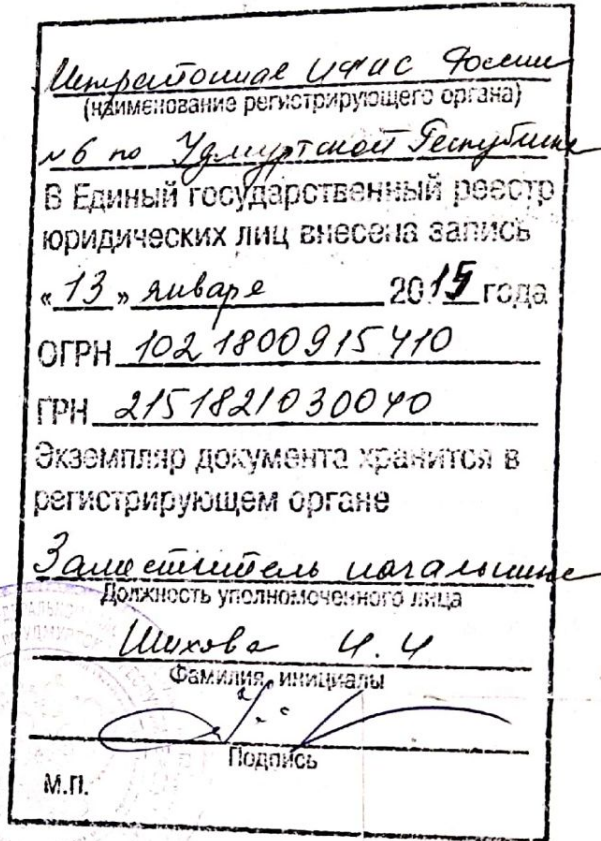 Межрайонная ИФНС России
(наименование регистрирующего органа)
№6 по Удмуртской Республике
В Единый государственный реестр
юридических лиц внесена запись
«13» января 2015 года
ОГРН 1021800915410
ГРН 2151821030040
Экземпляр документа хранится в
регистрирующем органе
Заместитель начальника
Должность уполномоченного лица
Шихова И.И
Фамилия, инициалы
Подпись
М.П.